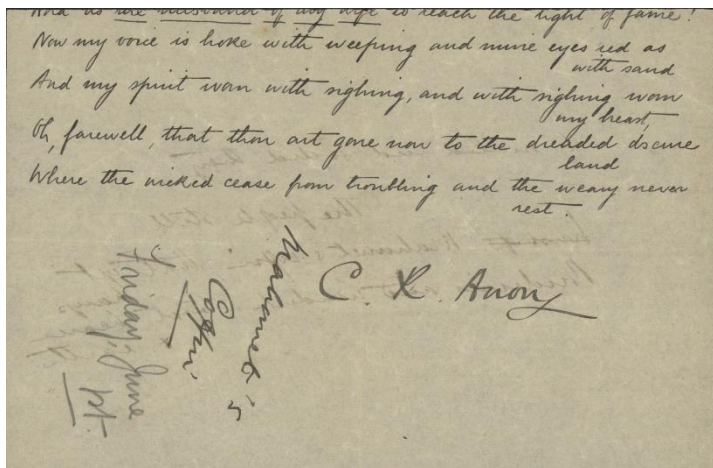 And as the husband of my wife to reach the light of fame!
Now my voice is hoke with weeping and mine eyes red as
with sand
And my spirit worn with sighing, and with sighing worn
my heart,
Oh, farewell, that thou art gone now to the dreaded dscure
land
Where the wicked cease from troubling and the weary never
rest.
C. R. Anon
Mahomet's
Coffin.
Friday, June
1st.